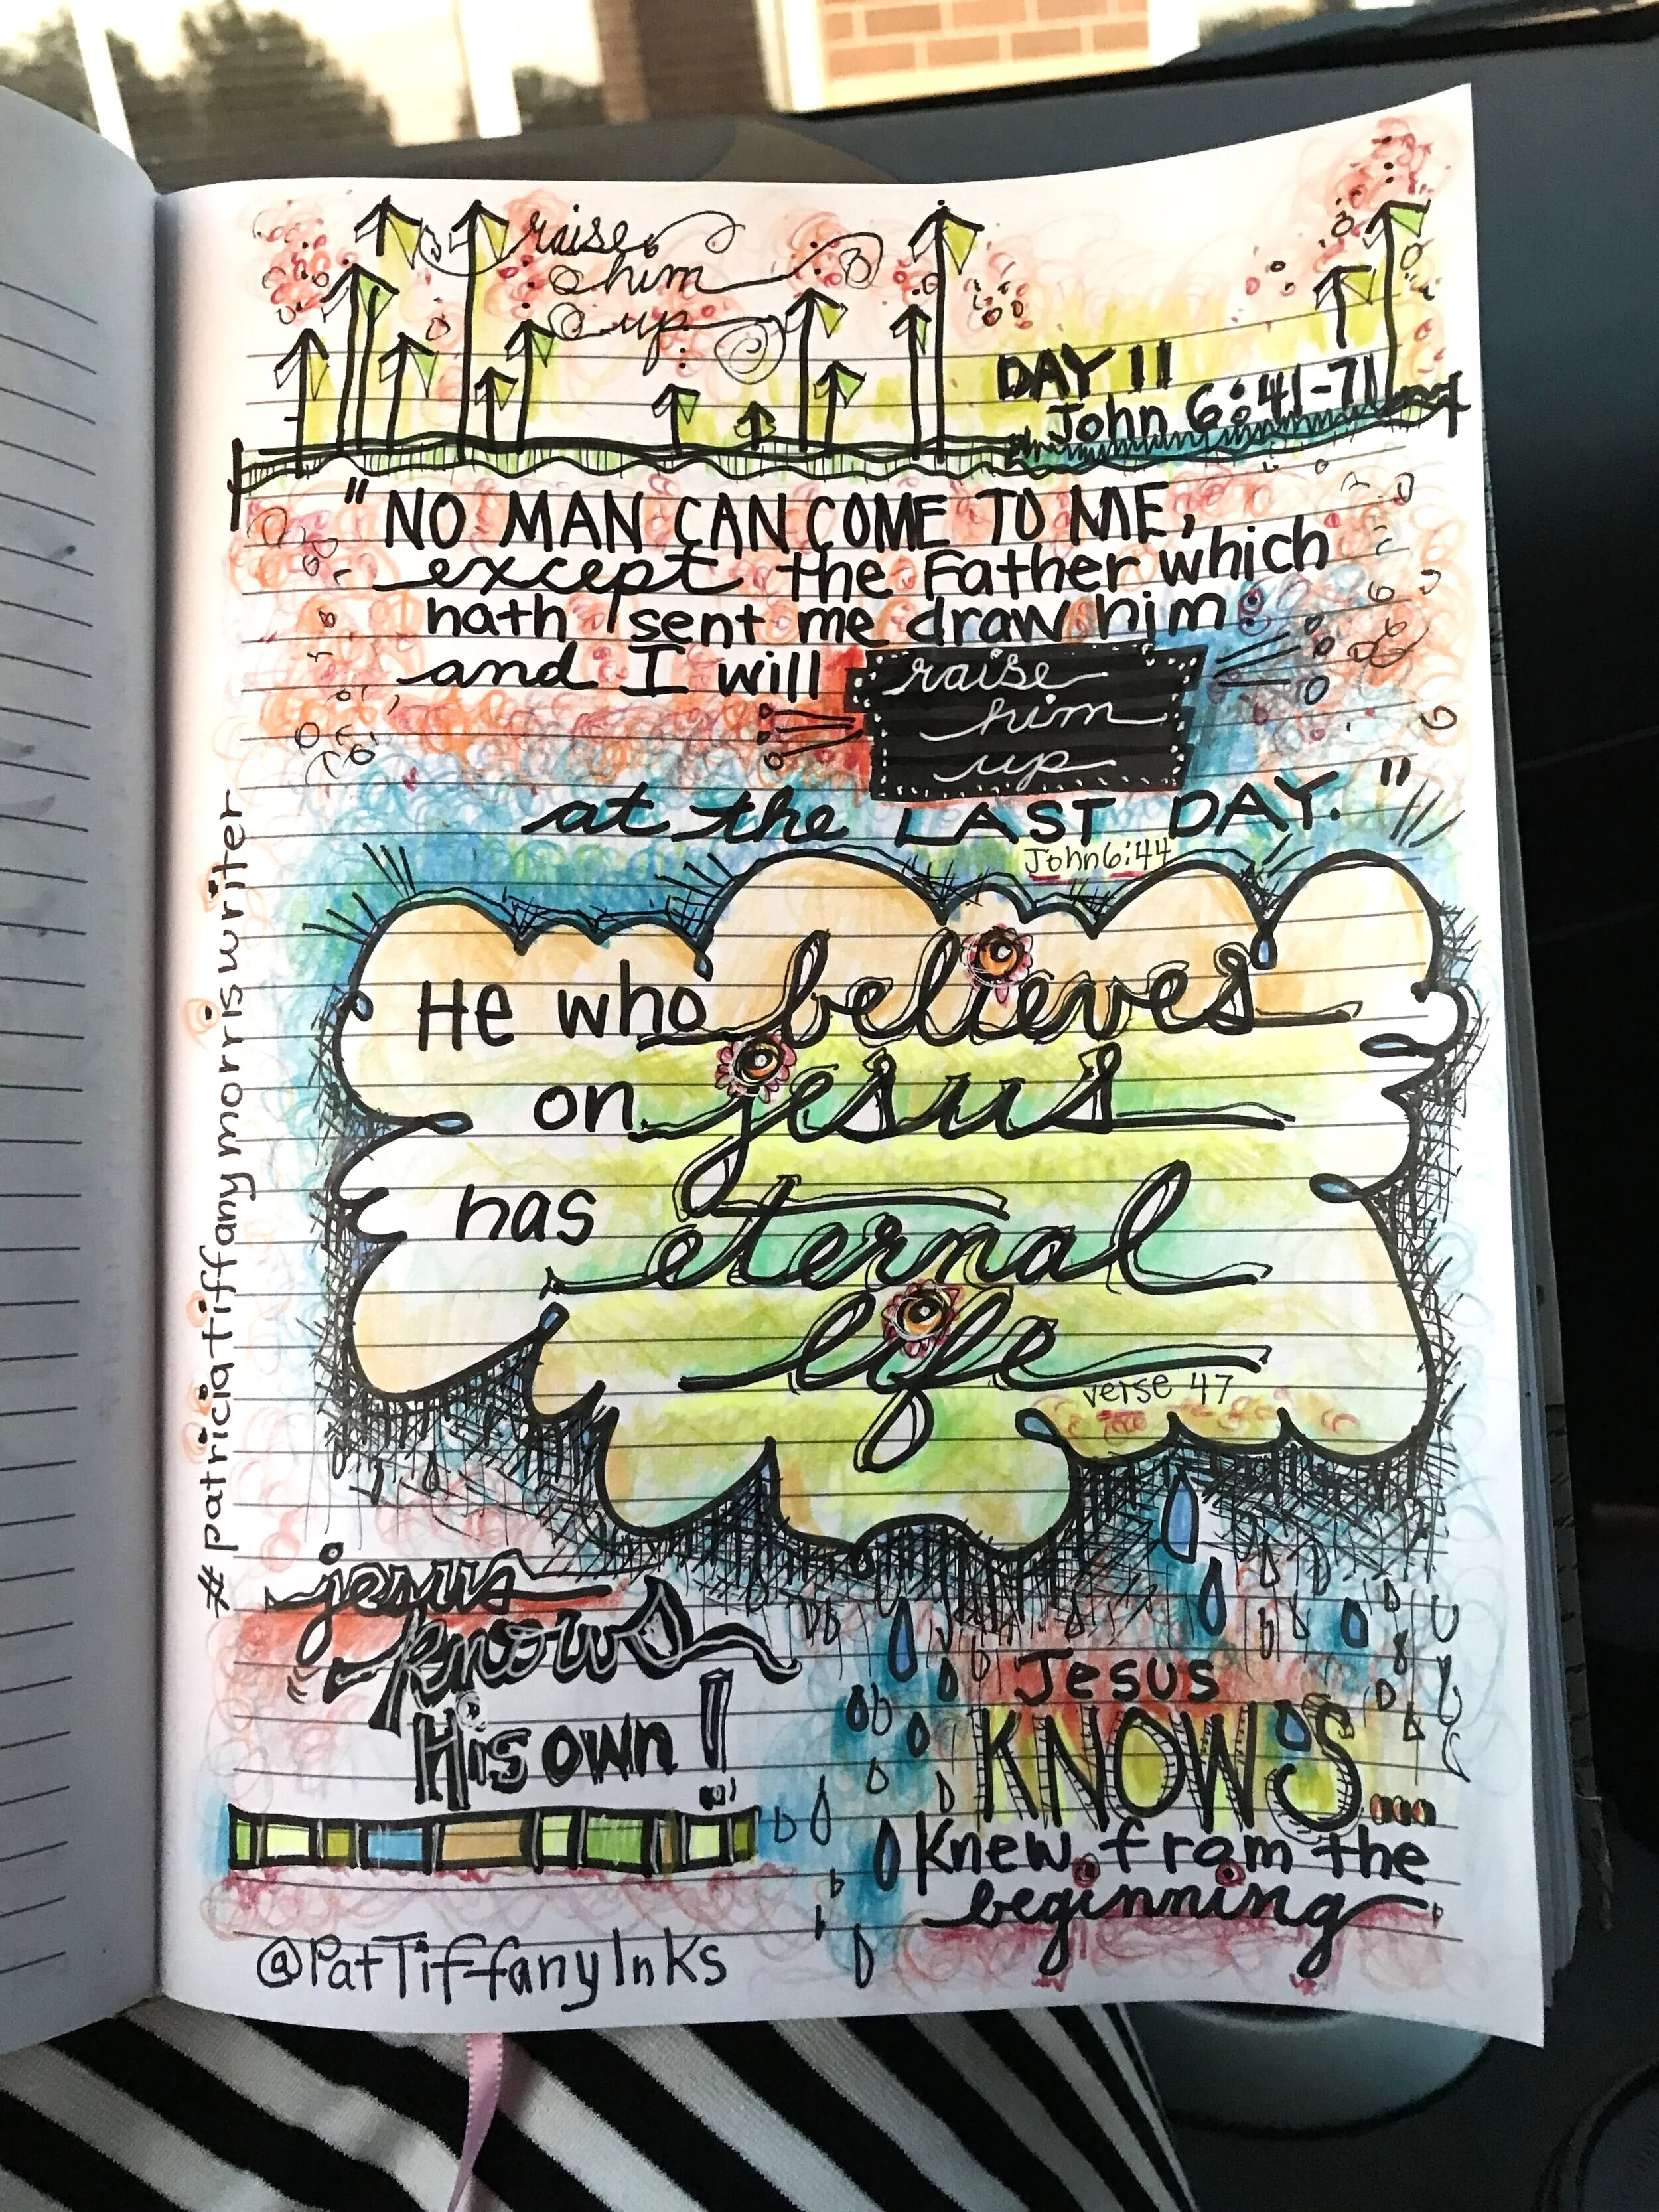 raise
him
up
DAY 11
John 6:41-71
"NO MAN CAN COME TO ME,
except the Father which
hath sent me draw him
and I will raise
him
up
at the LAST DAY."
John 6:44
He who believes
on jesus
has eternal
life
verse 47
#patriciatiffanymorriswriter
jesus
knows
His own!
Jesus
KNOWS....
Knew from the
beginning
@PatTiffanyInks